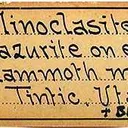 linoclasite
azurite on e
Mammoth m
Tintic, Uta
+ B